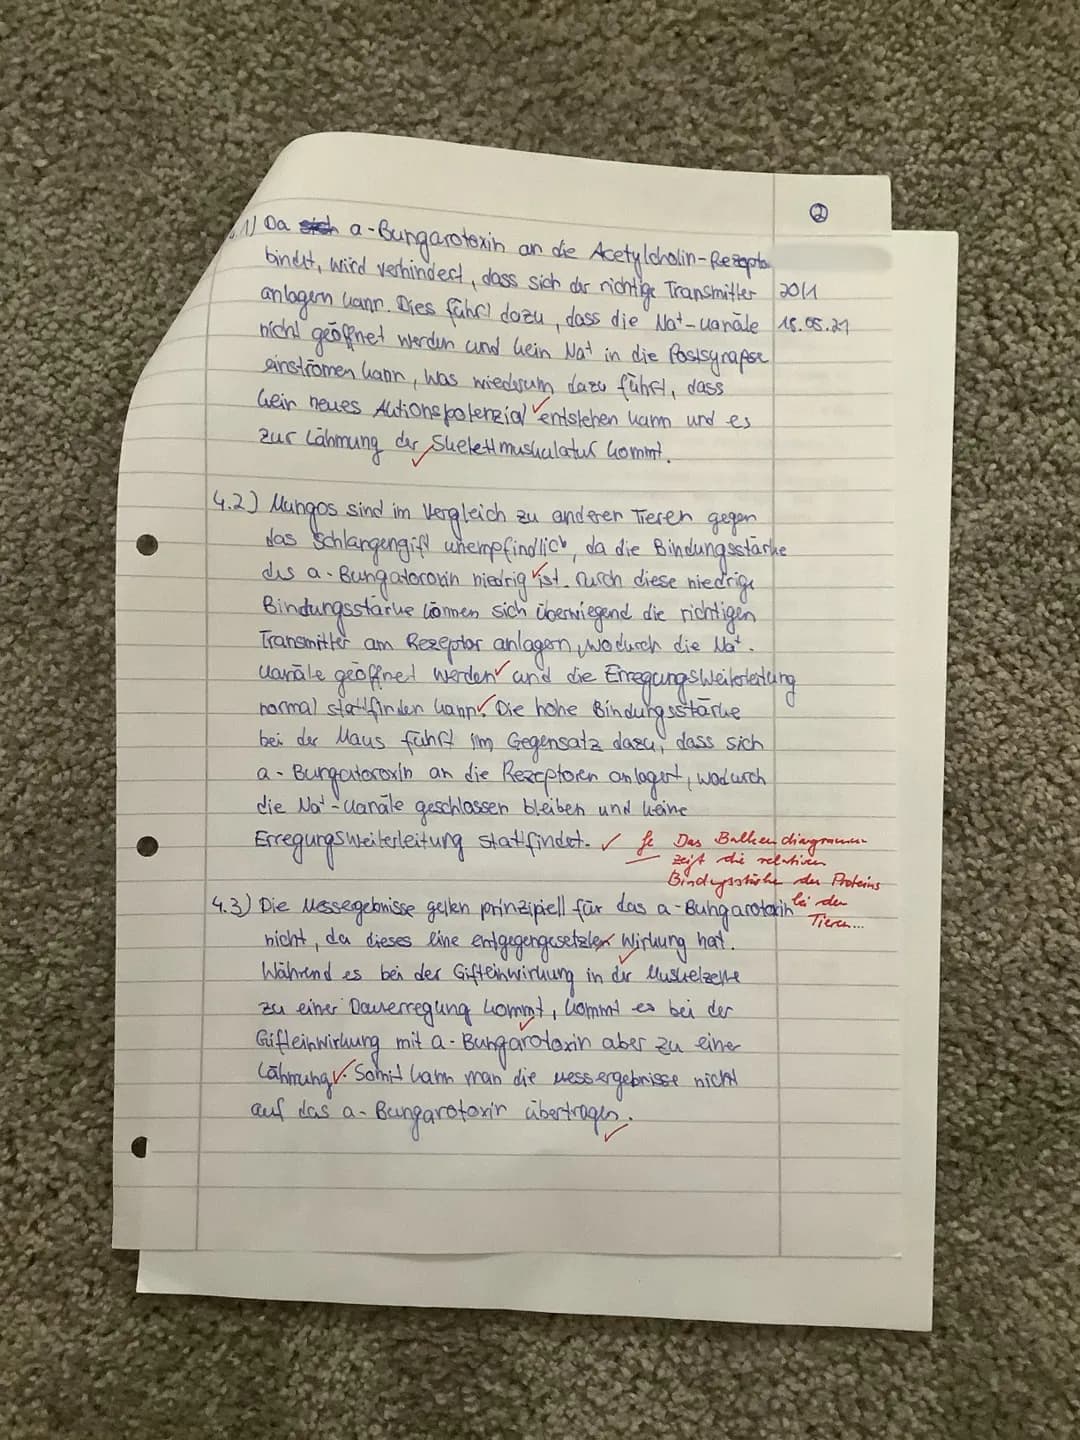 ②
.1) Da sich a-Bungarotoxin an die Acetylcholin-Rezepto
bindet, wird verhindert, dass sich der richtige Transmitter
20/1
anlagern kann. Dies führt dazu, dass die Na⁺-Kanäle
18.05.21
nicht geöffnet werden und kein Na⁺ in die Postsynapse
einströmen kann, was wiederum dazu führt, dass
kein neues Aktionspotenzial entstehen kann und es
zur Lähmung der Skelettmuskulatur kommt.
4.2) Mungos sind im Vergleich zu anderen Tieren gegen
das Schlangengift unempfindlich, da die Bindungsstärke
des a-Bungatoroxin niedrig ist. Durch diese niedrige
Bindungsstärke können sich überwiegend die richtigen
Transmitter am Rezeptor anlagen, wodurch die Na⁺-
Kanäle geöffnet werden und die Erregungsweiterleitung
normal stattfinden kann. Die hohe Bindungsstärke
bei der Maus führt im Gegensatz dazu, dass sich
a-Bungatoroxin an die Rezeptoren anlagert, wodurch
die Na⁺-Kanäle geschlossen bleiben und keine
Erregungsweiterleitung stattfindet.
Das Balkendiagramm
zeigt die relativen
Bindungsstärke des Proteins
bei den
Tieren...
4.3) Die Messergebnisse gelten prinzipiell für das a-Bungarotoxin
nicht, da dieses eine entgegengesetzte Wirkung hat.
Während es bei der Gifteinwirkung in der Muskelzelle
zu einer Dauererregung kommt, kommt es bei der
Gifteinwirkung mit a-Bungarotoxin aber zu einer
Lähmung. Somit kann man die Messergebnisse nicht
auf das a-Bungarotoxin übertragen.